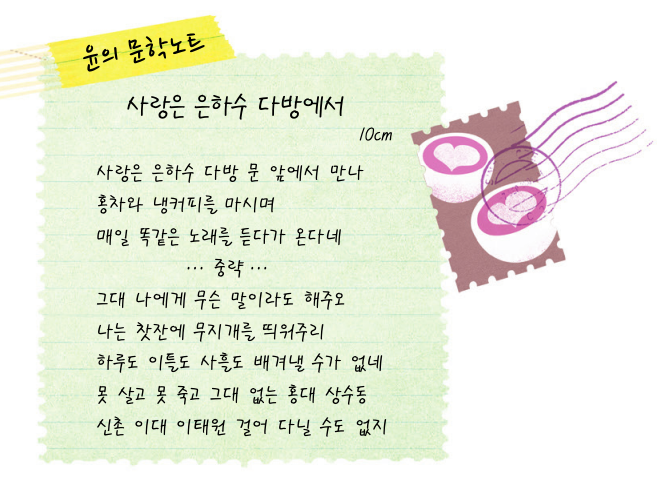 윤의 문학노트
사랑은 은하수 다방에서
10cm
사랑은 은하수 다방 문 앞에서 만나
홍차와 냉커피를 마시며
매일 똑같은 노래를 듣다가 온다네
… 중략 …
그대 나에게 무슨 말이라도 해주오
나는 찻잔에 무지개를 띄워주리
하루도 이틀도 사흘도 배겨낼 수가 없네
못 살고 못 죽고 그대 없는 홍대 상수동
신촌 이대 이태원 걸어 다닐 수도 없지